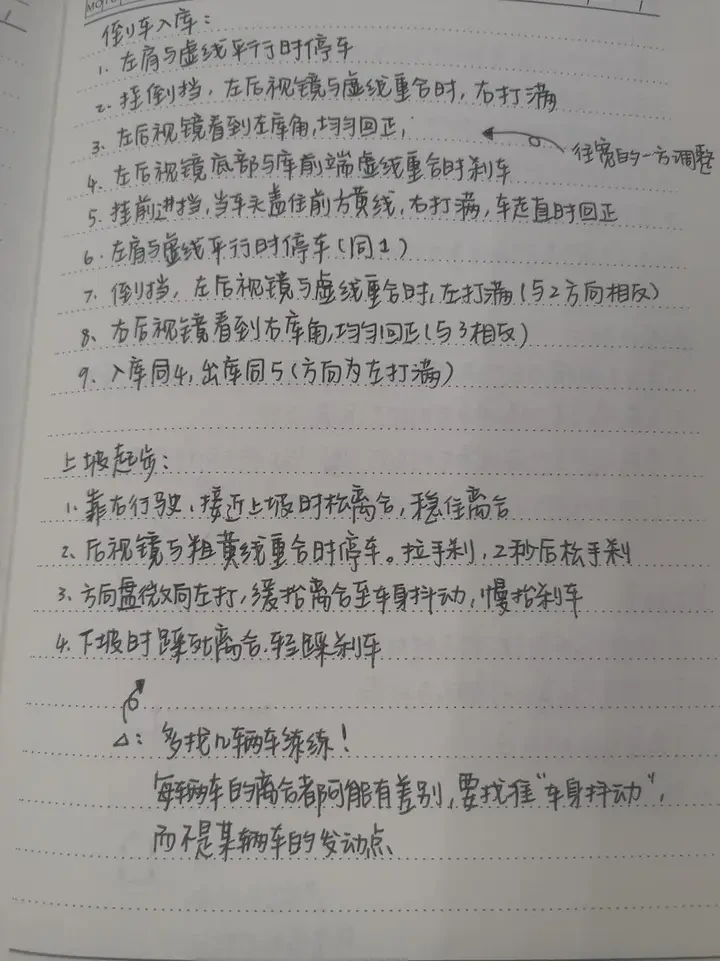 倒车入库：
1. 左肩与虚线平行时停车
2. 挂倒挡，左后视镜与虚线重合时，右打满
3. 左后视镜看到左库角，均匀回正，
往宽的一方调整
4. 左后视镜底部与库前端虚线重合时刹车
5. 挂前进挡，当车头盖住前方黄线，右打满，车走直时回正
6. 左肩与虚线平行时停车(同1)
7. 倒挡，左后视镜与虚线重合时，左打满(与2方向相反)
8. 右后视镜看到右库角，均匀回正(与3相反)
9. 入库同4，出库同5(方向为左打满)
上坡起步：
1. 靠右行驶、接近上坡时松离合，稳住离合
2. 后视镜与粗黄线重合时停车。拉手刹，2秒后松手刹
3. 方向盘微向左打，缓抬离合至车身抖动，慢抬刹车
4. 下坡时踩死离合.轻踩刹车
△：多找几辆车练练！
每辆车的离合都可能有差别，要找准“车身抖动”，
而不是某辆车的发动点、